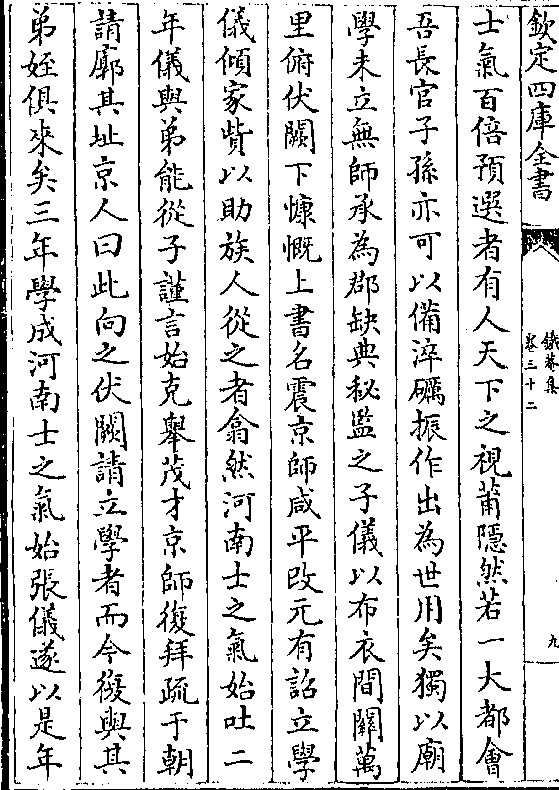 欽定四庫全書
鐵菴集
卷三十二
九
士氣百倍預選者有人天下之視莆隱然若一大都會
吾長官子孫亦可以備淬礪振作出為世用矣獨以廟
學未立無師承為郡缺典秘監之子儀以布衣間關萬
里俯伏闕下慷慨上書名震京師咸平改元有詔立學
儀傾家貲以助族人從之者翕然河南士之氣始吐二
年儀與弟能從子謹言始克舉茂才京師復拜疏于朝
請廓其址京人曰此向之伏闕請立學者而今復與其
弟姪俱來矣三年學成河南士之氣始張儀遂以是年